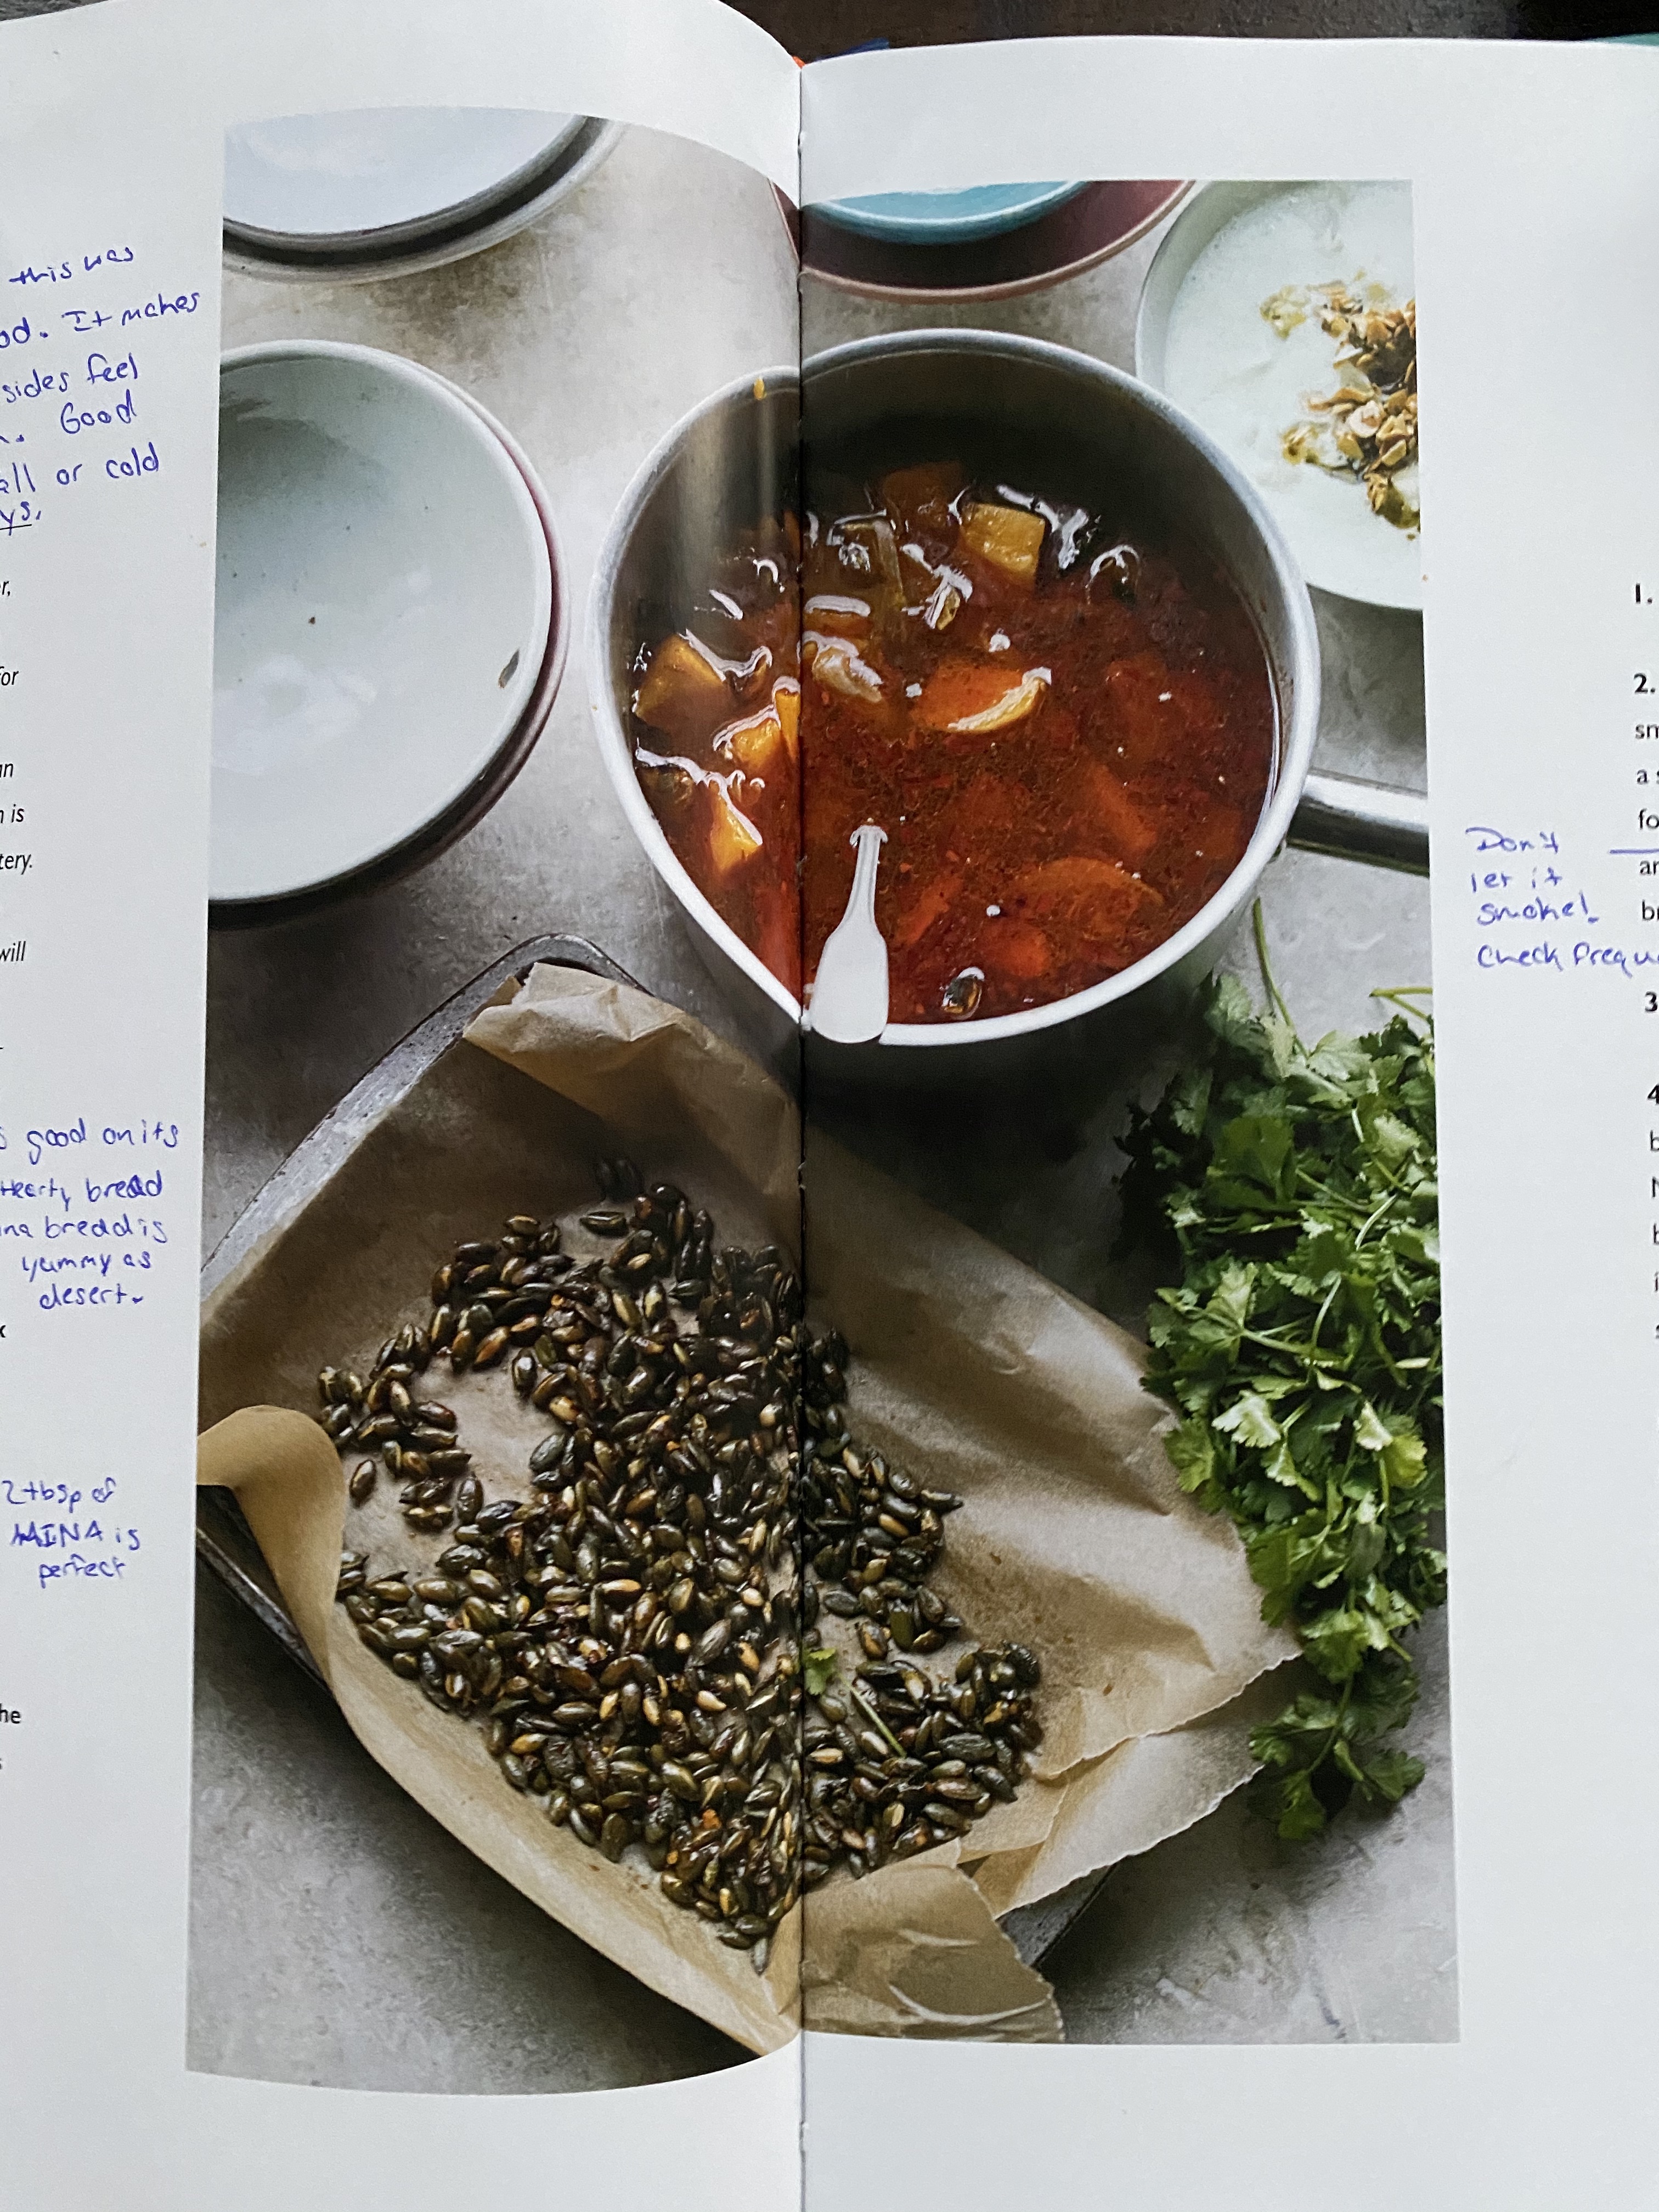 this was
od. It makes
sides feel
Good
all or cold
ys.
r,
for
an
n is
tery.
will
good on its
Hearty bread
bread is
yummy as
desert.
2 tbsp of
MINA is
perfect
he
1.
2.
sm
a s
fo
Don't
let it
smoke!
ar
br
Check frequ
3
4
b